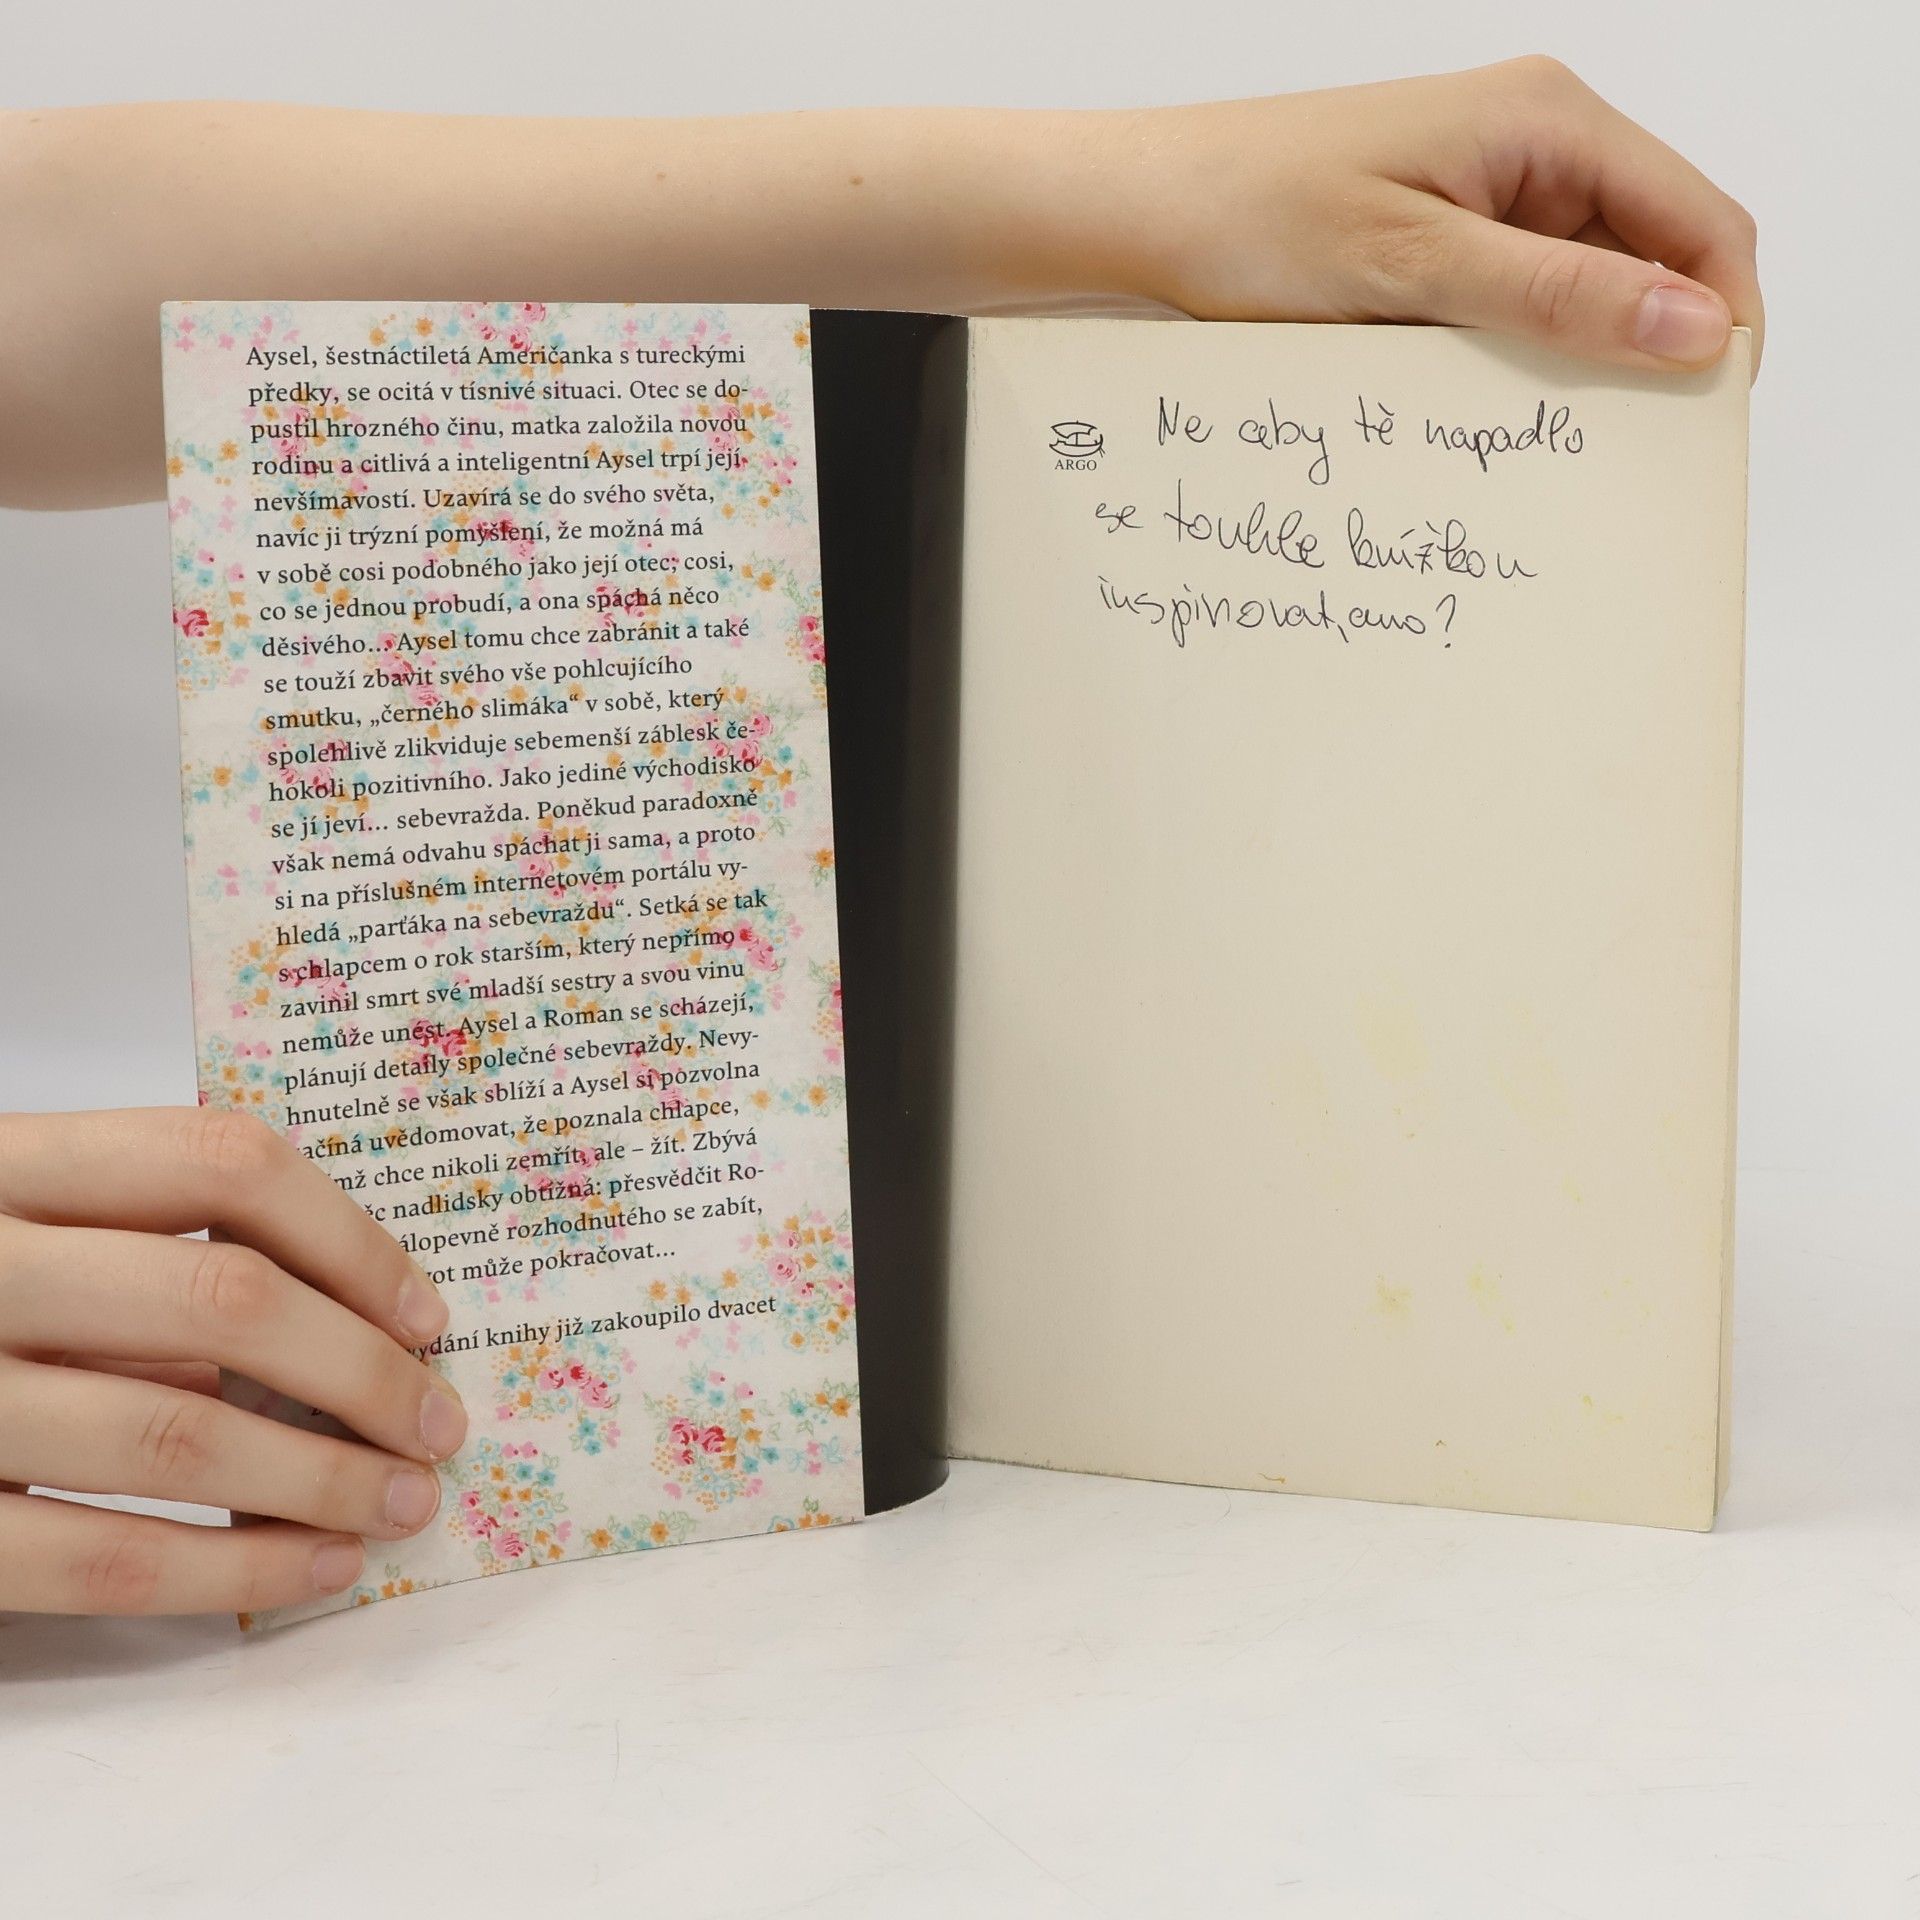 Aysel, šestnáctiletá Američanka s tureckými
předky, se ocitá v tísnivé situaci. Otec se do-
pustil hrozného činu, matka založila novou
rodinu a citlivá a inteligentní Aysel trpí její
nevšímavostí. Uzavírá se do svého světa,
navíc ji trýzní pomyšlení, že možná má
v sobě cosi podobného jako její otec; cosi,
co se jednou probudí, a ona spáchá něco
děsivého... Aysel tomu chce zabránit a také
se touží zbavit svého vše pohlcujícího
smutku, „černého slimáka“ v sobě, který
spolehlivě zlikviduje sebemenší záblesk če-
hokoli pozitivního. Jako jediné východisko
se jí jeví... sebevražda. Poněkud paradoxně
však nemá odvahu spáchat ji sama, a proto
si na příslušném internetovém portálu vy-
hledá „parťáka na sebevraždu“. Setká se tak
s chlapcem o rok starším, který nepřímo
zavinil smrt své mladší sestry a svou vinu
nemůže unést. Aysel a Roman se scházejí,
plánují detaily společné sebevraždy. Nevy-
hnutelně se však sblíží a Aysel si pozvolna
ačíná uvědomovat, že poznala chlapce,
mž chce nikoli zemřít, ale – žít. Zbývá
ěc nadlidsky obtížná: přesvědčit Ro-
álopevně rozhodnutého se zabít,
vot může pokračovat...
vydání knihy již zakoupilo dvacet
ARGO
Ne aby tě napadlo
se touhle knížkou
inspirovat, ano?